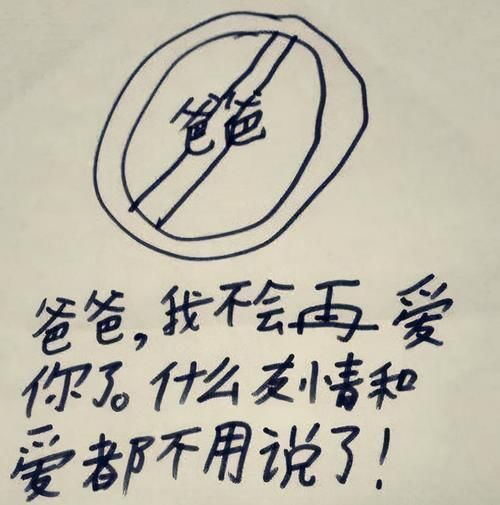 爸爸
爸爸,我不会再爱
你了。什么友情和
爱都不用说了!